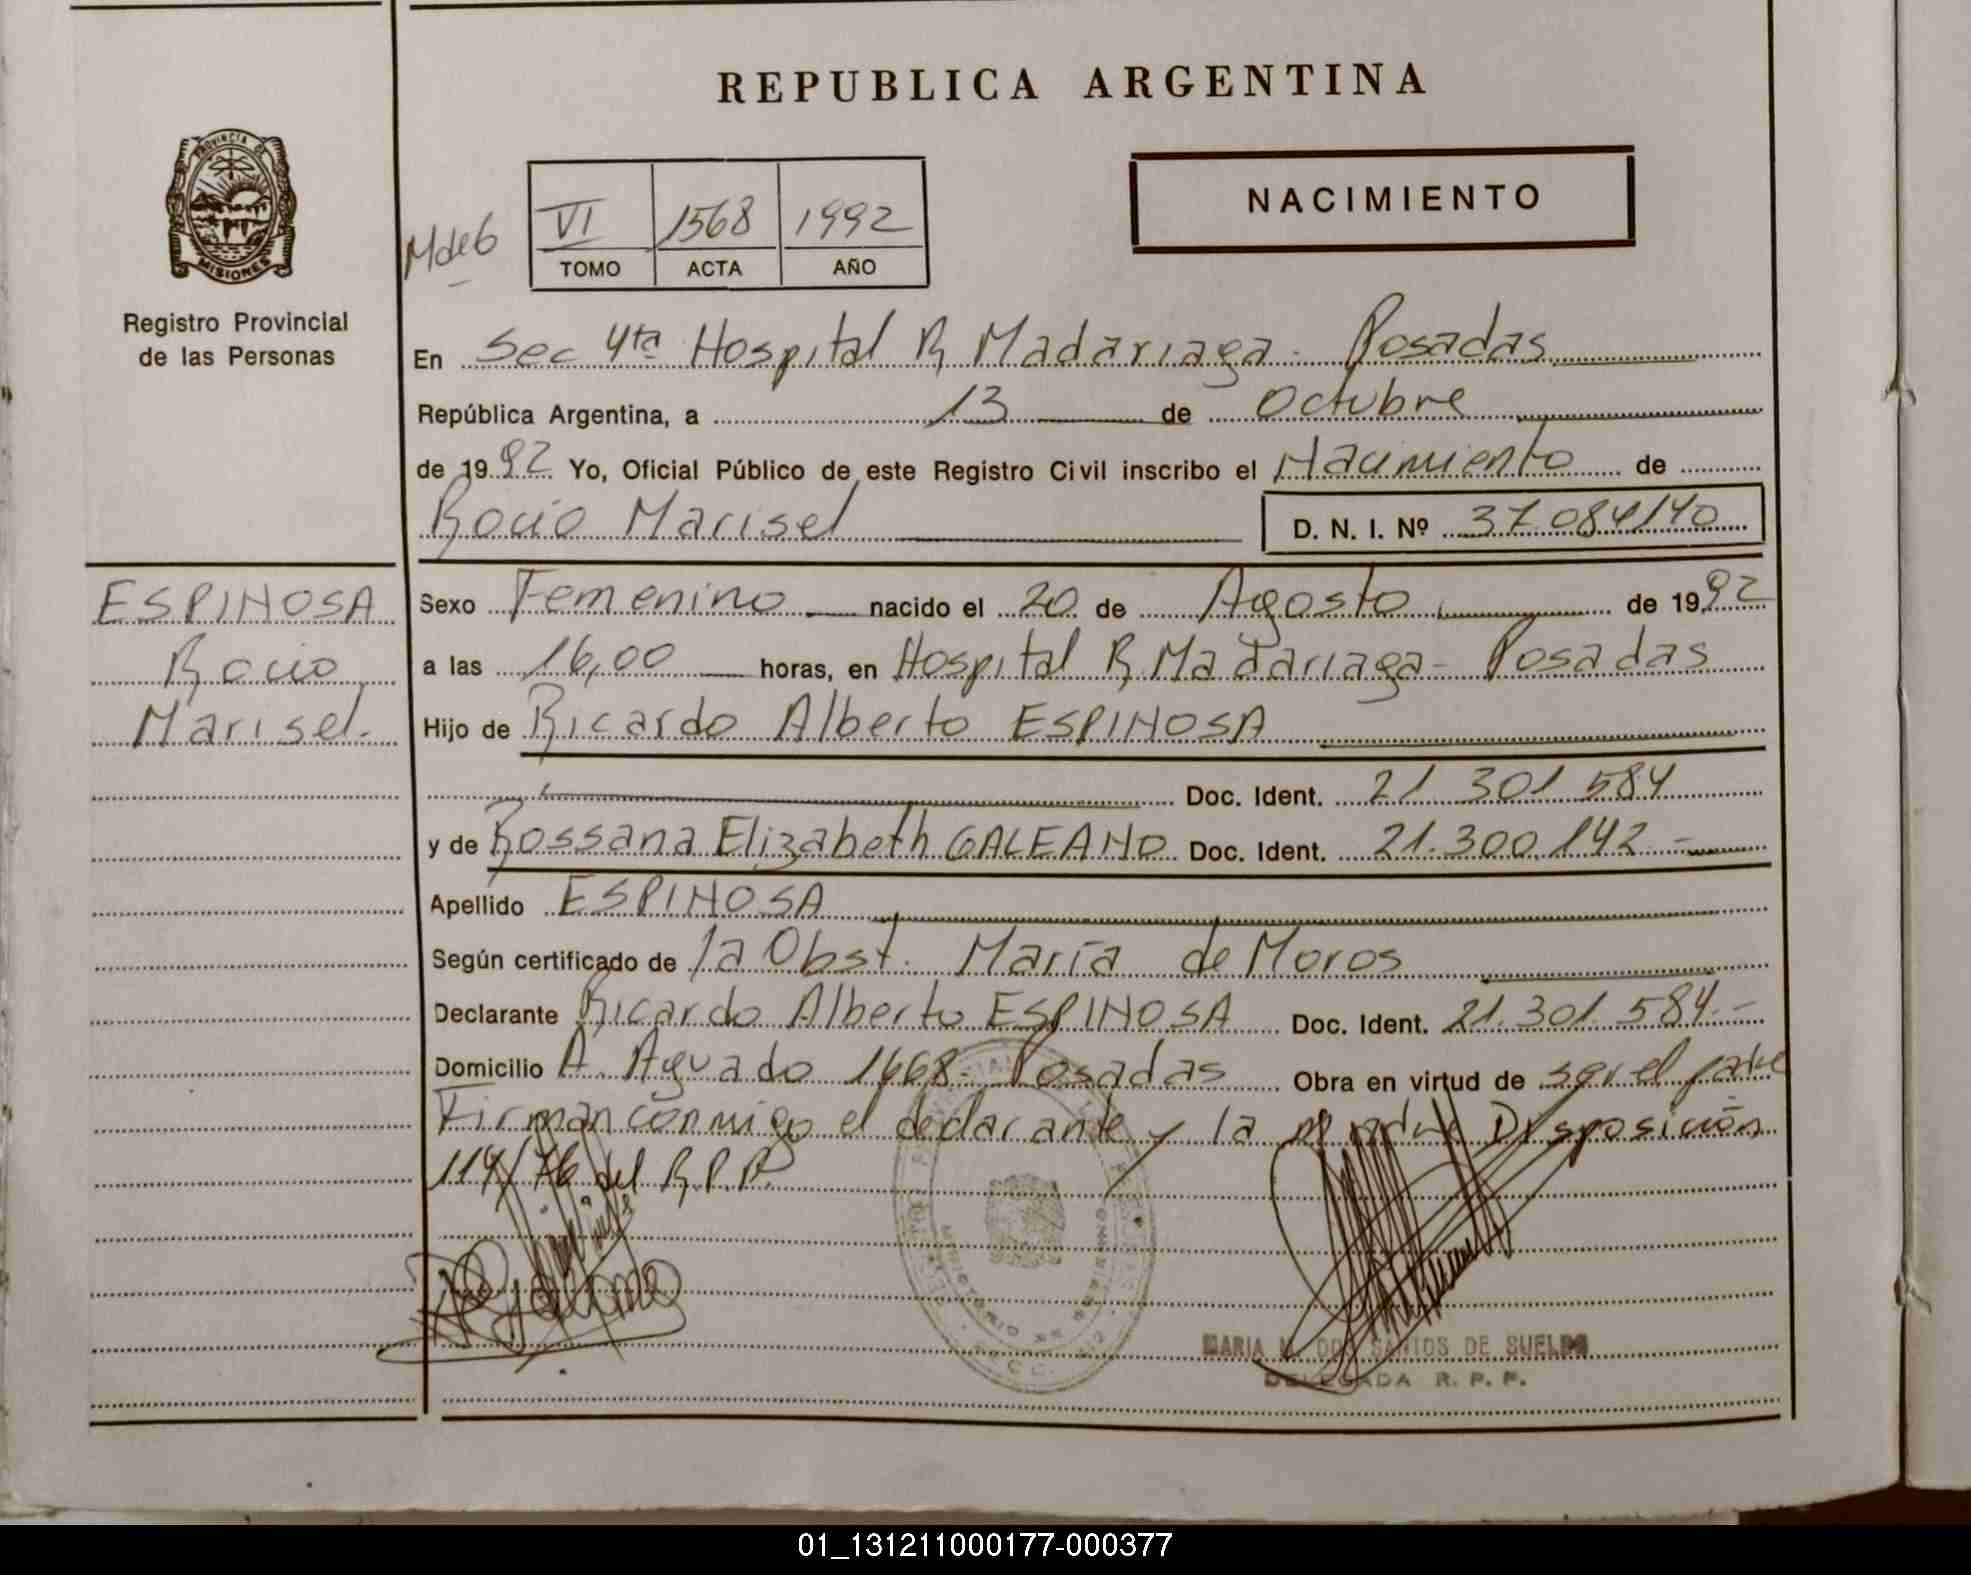 REPUBLICA ARGENTINA
PROVINCIA DE
MISIONES
Registro Provincial
de las Personas
VI 1568 1992
TOMO ACTA AÑO
NACIMIENTO
En Sec 4ta Hospital R Madariaga - Posadas
República Argentina, a 13 de Octubre
de 1992 Yo, Oficial Público de este Registro Civil inscribo el Nacimiento de
Rocío Marisel D. N. I. Nº 37.084140
ESPINOSA
Rocío
Marisel.
Sexo Femenino nacido el 20 de Agosto de 1992
a las 16,00 horas, en Hospital R, Madariaga - Posadas
Hijo de Ricardo Alberto ESPINOSA
Doc. Ident. 21.301.584
y de Rossana Elizabeth GALEANO Doc. Ident. 21.300.142 -
Apellido ESPINOSA
Según certificado de la Obst. María de Moros
Declarante Ricardo Alberto ESPINOSA Doc. Ident. 21.301.584.-
Domicilio A. Aguado 1668 - Posadas Obra en virtud de ser el padre
Firman conmigo el declarante y la madre Disposición
114/76 del R.P.P.
MARIA DOS SANTOS DE SUELDO
DELEGADA R. P. P.
01_131211000177-000377